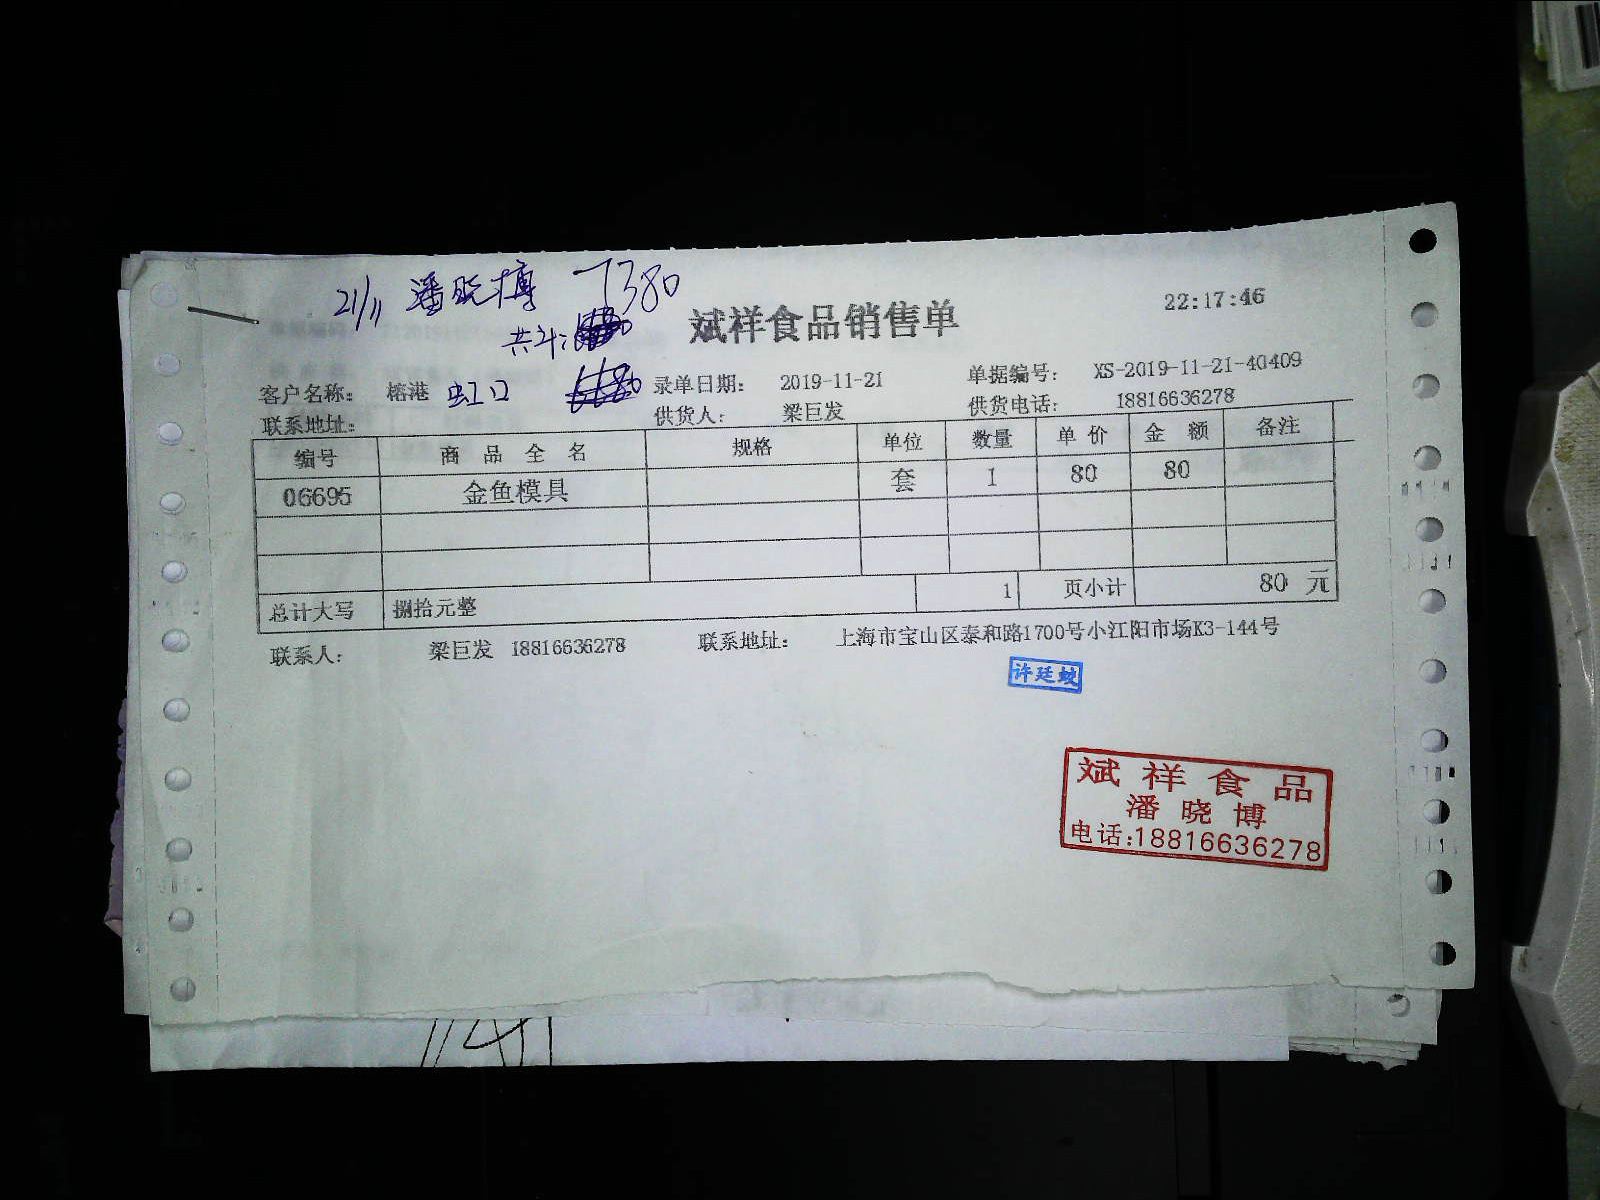 21/11 潘晓博 7380
共计:
斌祥食品销售单
22:17:46
客户名称: 榕港 虹口 录单日期: 2019-11-21 单据编号: XS-2019-11-21-40409
联系地址: 供货人: 梁巨发 供货电话: 18816636278
编号 商品全名 规格 单位 数量 单价 金额 备注
06695 金鱼模具 套 1 80 80
总计大写 捌拾元整 1 页小计 80 元
联系人: 梁巨发 18816636278 联系地址: 上海市宝山区泰和路1700号小江阳市场K3-144号
许廷
斌祥食品
潘晓博
电话:18816636278